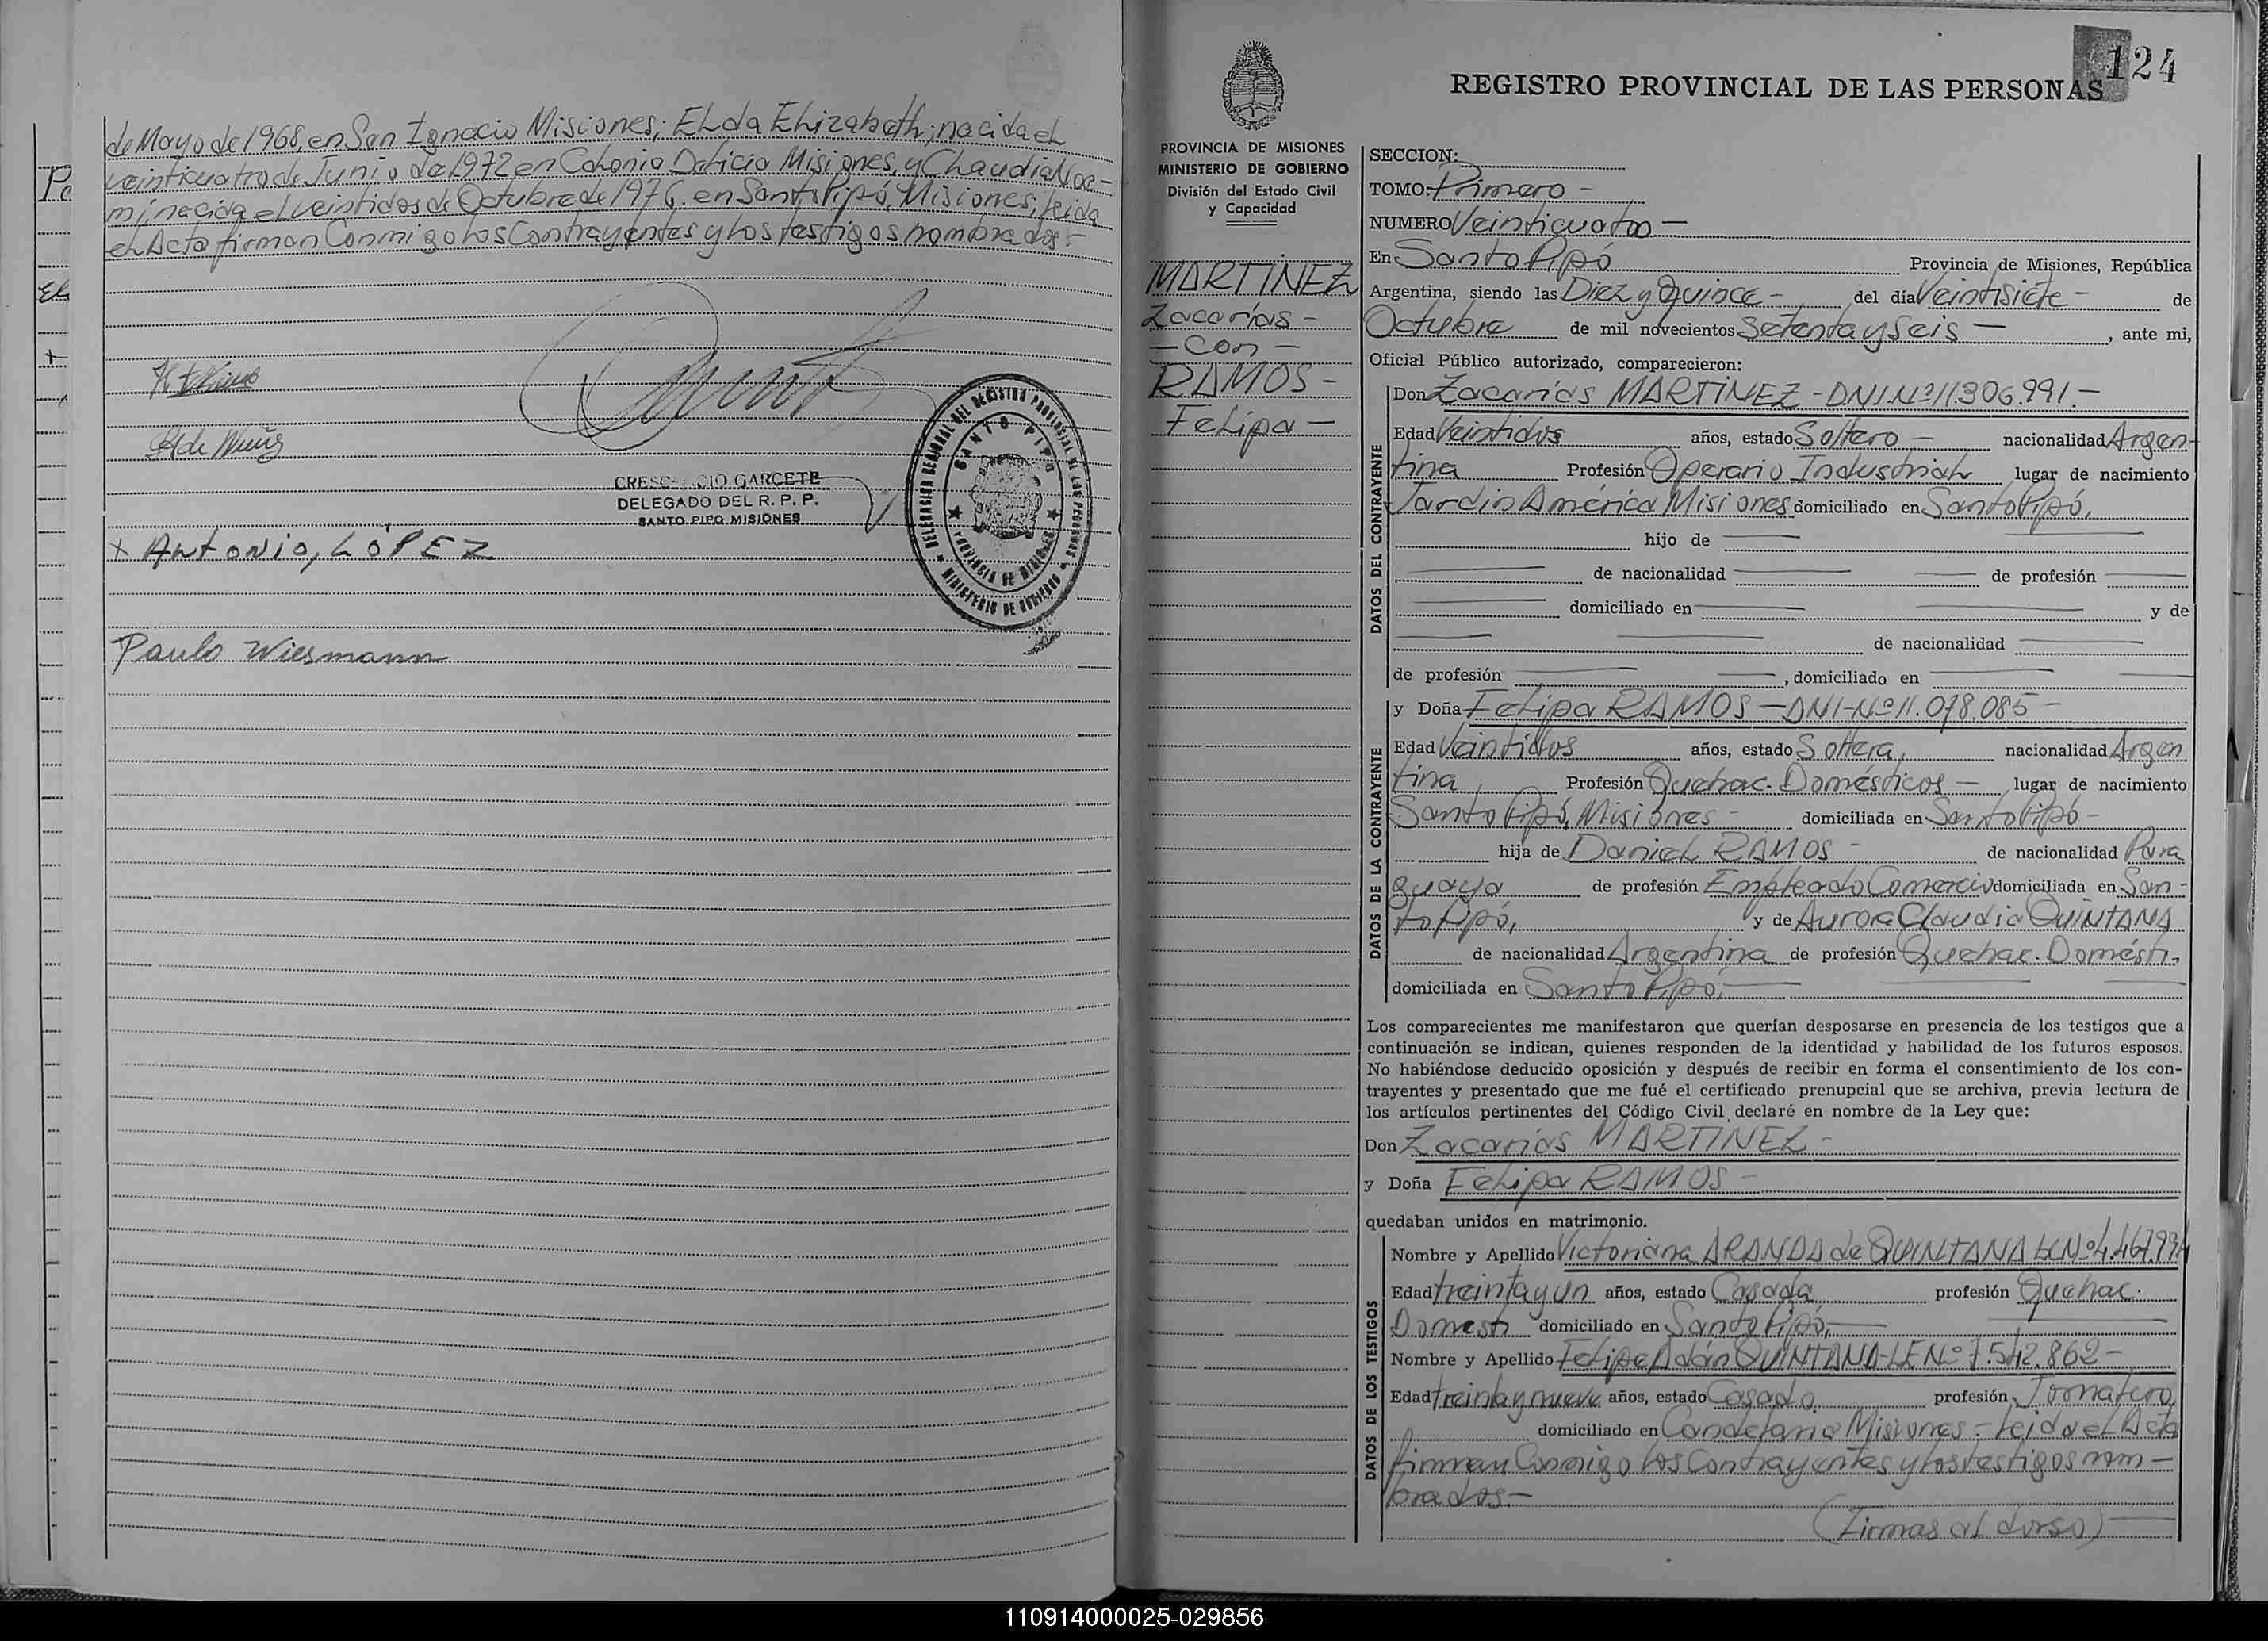 de Mayo de 1968, en San Ignacio Misiones; Elda Elizabeth; nacida el
veinticuatro de Junio de 1972 en Colonia Misiones, y Claudia Noe-
mí, nacida el veintidos de Octubre de 1976. en Santo Pipó, Misiones; leida
el Acta firman Conmigo los Contrayentes y los testigos nombrados.-
DELEGADO DEL R. P. P.
SANTO PIPO MISIONES
GARCETE
SANTO PIPO
PROVINCIA DE MISIONES
MINISTERIO DE GOBIERNO
x Antonio, LÓPEZ
Paulo Wiesmann
124
REGISTRO PROVINCIAL DE LAS PERSONAS
PROVINCIA DE MISIONES
MINISTERIO DE GOBIERNO
División del Estado Civil
y Capacidad
MARTINEZ
Zacarías -
- Con -
RAMOS -
Felipa -
SECCION:
TOMO: Primero -
NUMERO Veinticuatro -
En Santo Pipó Provincia de Misiones, República
Argentina, siendo las Diez y Quince - del día Veintisiete - de
Octubre de mil novecientos Setenta y Seis - , ante mi,
Oficial Público autorizado, comparecieron:
DATOS DEL CONTRAYENTE
Don Zacarías MARTINEZ - DNI. Nº 11306.991.-
Edad Veintidos años, estado Soltero - nacionalidad Argen-
tina Profesión Operario Industrial lugar de nacimiento
Jardin América Misiones domiciliado en Santo Pipó,
hijo de
de nacionalidad de profesión
domiciliado en y de
de nacionalidad
de profesión , domiciliado en
DATOS DE LA CONTRAYENTE
y Doña Felipa RAMOS - DNI - Nº 11.078.085 -
Edad Veintidos años, estado Soltera, nacionalidad Argen
tina Profesión Quehac. Domésticos - lugar de nacimiento
Santo Pipó, Misiones - domiciliada en Santo Pipó -
hija de Daniel RAMOS - de nacionalidad Para
guaya de profesión Empleado Comercio domiciliada en San-
to Pipó, y de Aurora Claudia QUINTANA
de nacionalidad Argentina de profesión Quehac. Domésti-
domiciliada en Santo Pipó,
Los comparecientes me manifestaron que querían desposarse en presencia de los testigos que a
continuación se indican, quienes responden de la identidad y habilidad de los futuros esposos.
No habiéndose deducido oposición y después de recibir en forma el consentimiento de los con-
trayentes y presentado que me fué el certificado prenupcial que se archiva, previa lectura de
los artículos pertinentes del Código Civil declaré en nombre de la Ley que:
Don Zacarías MARTINEZ -
y Doña Felipa RAMOS -
quedaban unidos en matrimonio.
DATOS DE LOS TESTIGOS
Nombre y Apellido Victoriana ARANDA de QUINTANA LC Nº
Edad treinta y un años, estado Casada profesión Quehac.
Domesti domiciliado en Santo Pipó,
Nombre y Apellido Felipe Adán QUINTANA - LE Nº 7.542.862 -
Edad treinta y nueve años, estado Casado profesión Jornalero
domiciliado en Candelaria Misiones - leida el Acta
firman Conmigo los Contrayentes y los testigos nom-
brados.-
(Firmas al dorso)
110914000025-029856